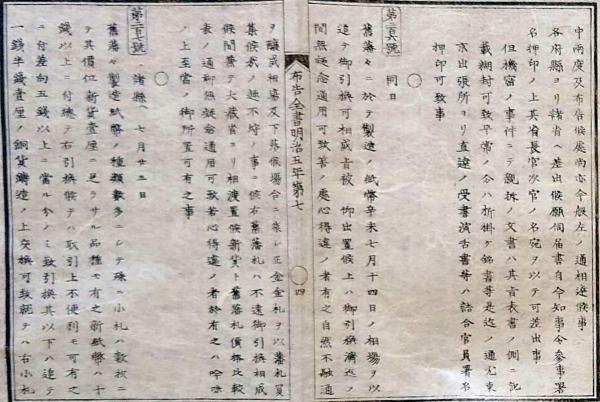 中兩度及布告候處尚亦今般左ノ通相達候事
各府縣ヨリ諸省ヘ差出候願伺届書自今知事令参事署
名押印ノ上其省長官次官ノ名宛ヲ以テ可差出事
但機密ノ事件ニテ親拆ノ文書ハ其旨表書ノ側ニ記
載糊封可致平常ノ分ハ折掛ケ銘書等是迄ノ通尤東
京出張所ヨリ直達ノ受書演舌書等ハ詰合官員署名
押印可致事
○
第二百六號
同日
舊藩々ニ於テ製造ノ紙幣辛未七月十四日ノ相場ヲ以
追テ御引換可相成旨被仰出置候上ハ御引換濟迄ノ
間無疑念通用可致筈ノ處心得違ノ者有之自然不融通
布告全書明治五年第七
○四
ヲ醸成相場及下落候場合ニ乘シ正金金札ヲ以舊藩札買
集候哉ノ趣不埒ノ事ニ候右舊藩札ハ不遠御引換相成
候間兼テ大藏省ヨリ相渡置候新貨ト舊藩札價格比較
表ノ通聊無疑念通用可致若心得違ノ者於有之ハ吟味
ノ上至當ノ御所置可有之事
○
第二百七號
諸縣ヘ
七月廿三日
舊藩々製造紙幣ノ種類數多ニシテ殊ニ小札ハ數枚ニ
テ其價位新貨壹厘ニ足ラサル品種モ有之新紙幣ハ十
錢以上ニ付總テ右引換候テハ取引上不便利モ可有之
ニ付差向五錢以上ニ當ル分ノミ致引換其以下ハ追テ
一錢半錢壹厘ノ銅貨鑄造ノ上交換可致就テハ右小札